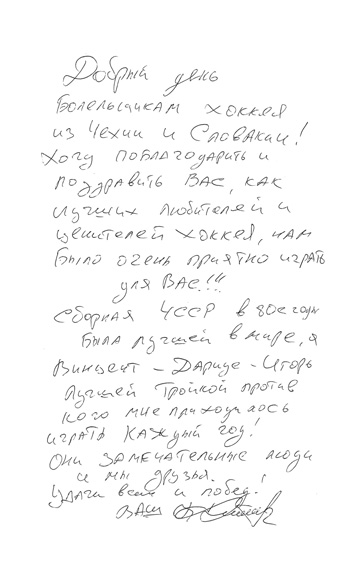 Добрый день
Болельщикам хоккея
из Чехии и Словакии!
Хочу поблагодарить и
поздравить ВАС, как
лучших любителей и
ценителей хоккея, нам
было очень приятно играть
для ВАС!!!
Сборная ЧССР в 80е годы
была лучшей в мире, а
Винцент - Дариус - Игорь
лучшей тройкой против
кого мне приходилось
играть каждый год!
Они замечательные люди
и мы друзья.
Удачи всем и побед!
ВАШ